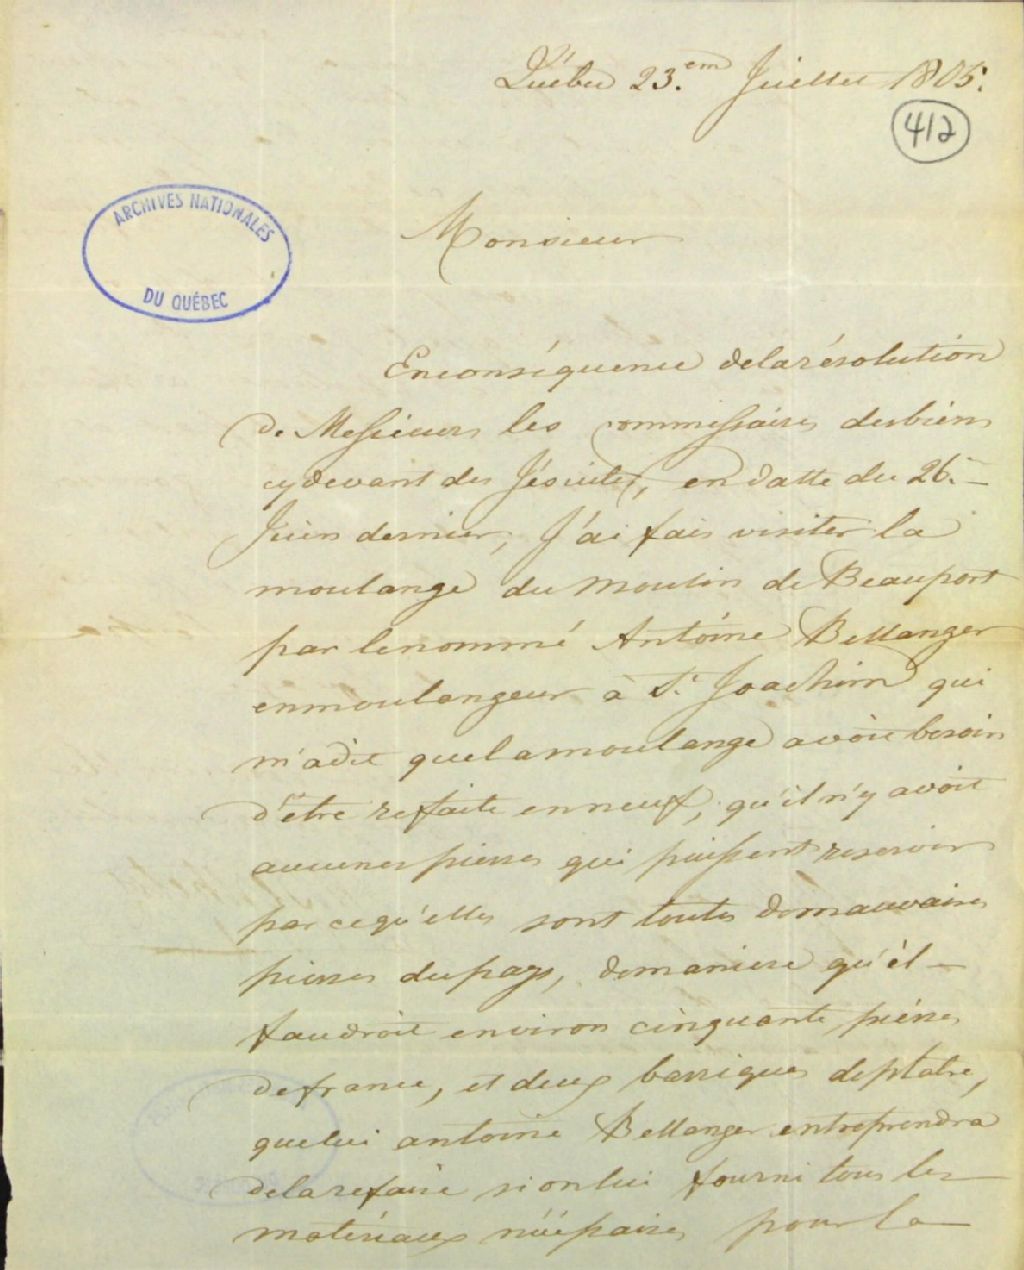 Québec 23.em Juillet 1805.
412
ARCHIVES NATIONALES
DU QUÉBEC
Monsieur
Enconséquence delarésolution
de Messieurs les commissaires desbiens
cydevant des Jésuites, en datte du 26.
Juin dernier, J'ai fais visiter la
moulange du moulin de Beauport
par lenommé Antoine Bellanger
enmoulangeur à St. Joachim qui
m'adit quelamoulange avoit besoin
d'être refaite enneuf, qu'il n'y avoit
aucunes pierres qui puissent reservir
par cequ'elles sont toutes demauvaises
pierres dupays, demaniere qu'il
faudroit environ cinquante piérres
defrance, et deux barriques deplatre,
quelui antoine Bellanger entreprendra
delarefaire sionlui fourni tous les
matériaux nécépaires pour la